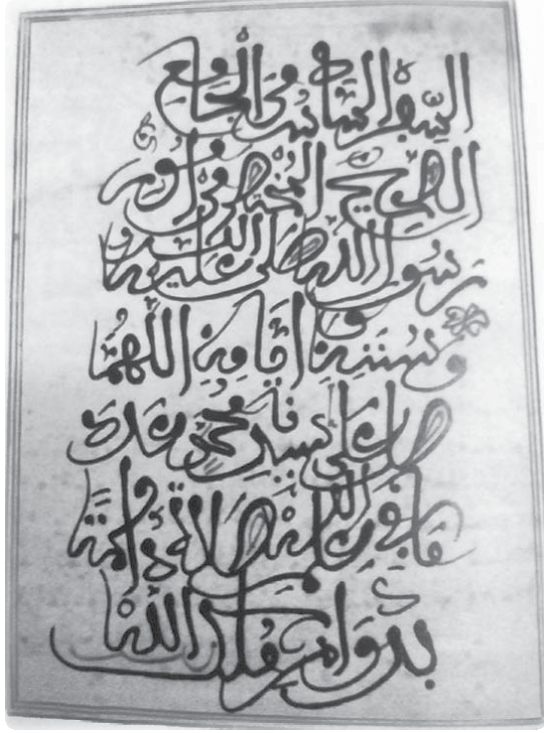 السفر السادس من الجامع
الصحيح المختصر من أمور
رسول الله صلى الله عليه وسلم
وسننه وأيامه اللهم
صل على سيدنا محمد عدد
ما في علم الله صلاة دائمة
بدوام ملك الله